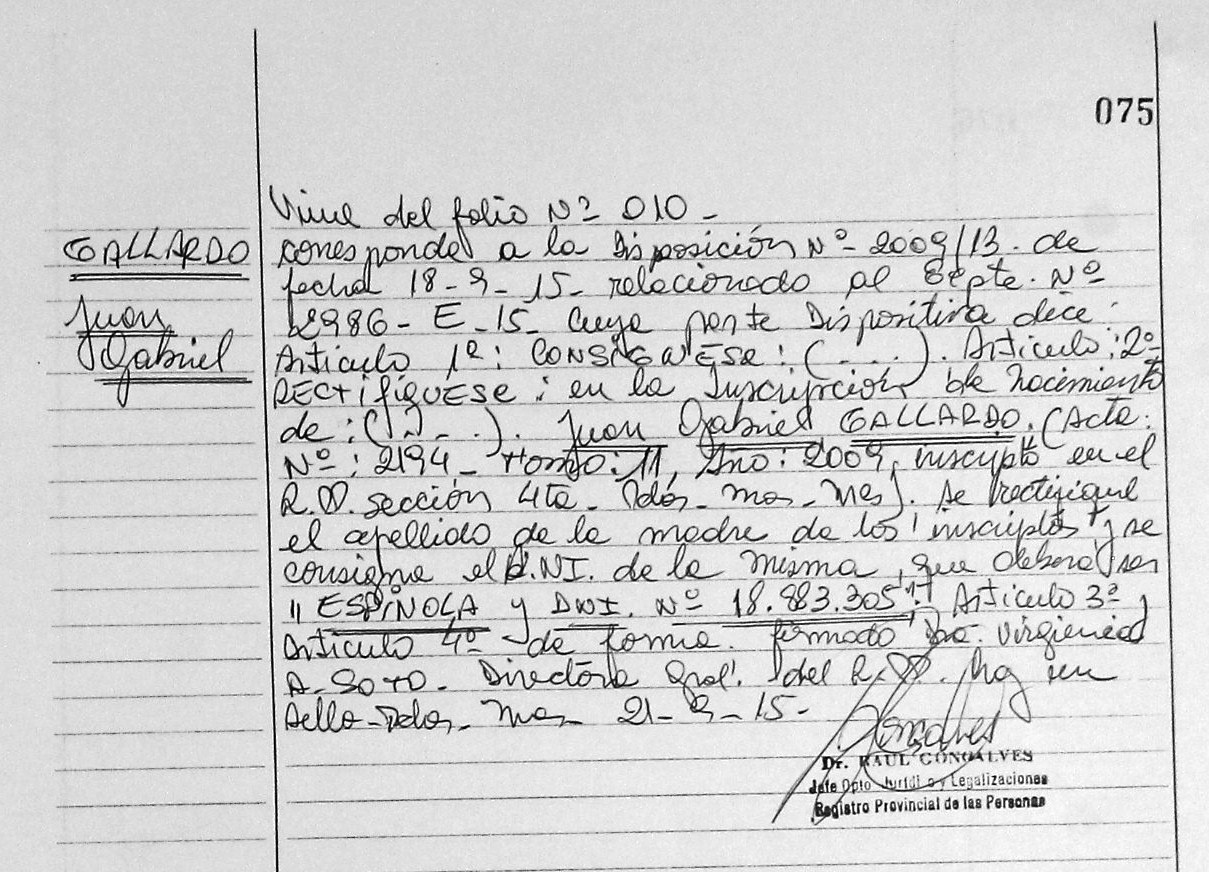 075
Viene del folio Nº 010 -
GALLARDO
Juan
Gabriel
corresponde a la Disposición Nº 2009/13. de
fecha 18-9-15- relacionado al Expte. Nº
2986- E-15- Cuya parte Dispositiva dice:
Articulo 1º: CONSIGNESE: (....). Articulo: 2º
RECTIFIQUESE: en la Inscripción de nacimiento
de: (....). Juan Gabriel GALLARDO. (Acta:
Nº: 2194- Tomo: 11, Año: 2009, inscripto en el
R.P. sección 4ta - Pdas - Mnes -). Se rectifique
el apellido de la madre de los inscriptos y se
consigne el D.NI. de la misma, que deberá ser
"ESPÍNOLA y DNI. Nº 18.883.305". Articulo 3º y
Articulo 4º de forma. firmado Dra. Virginia
A. SOTO. Directora Gral. del R.P. Hay un
Sello - Pdas - Mnes 21-9-15-
Dr. RAUL GONCALVES
Jefe Dpto. Jurídico y Legalizaciones
Registro Provincial de las Personas